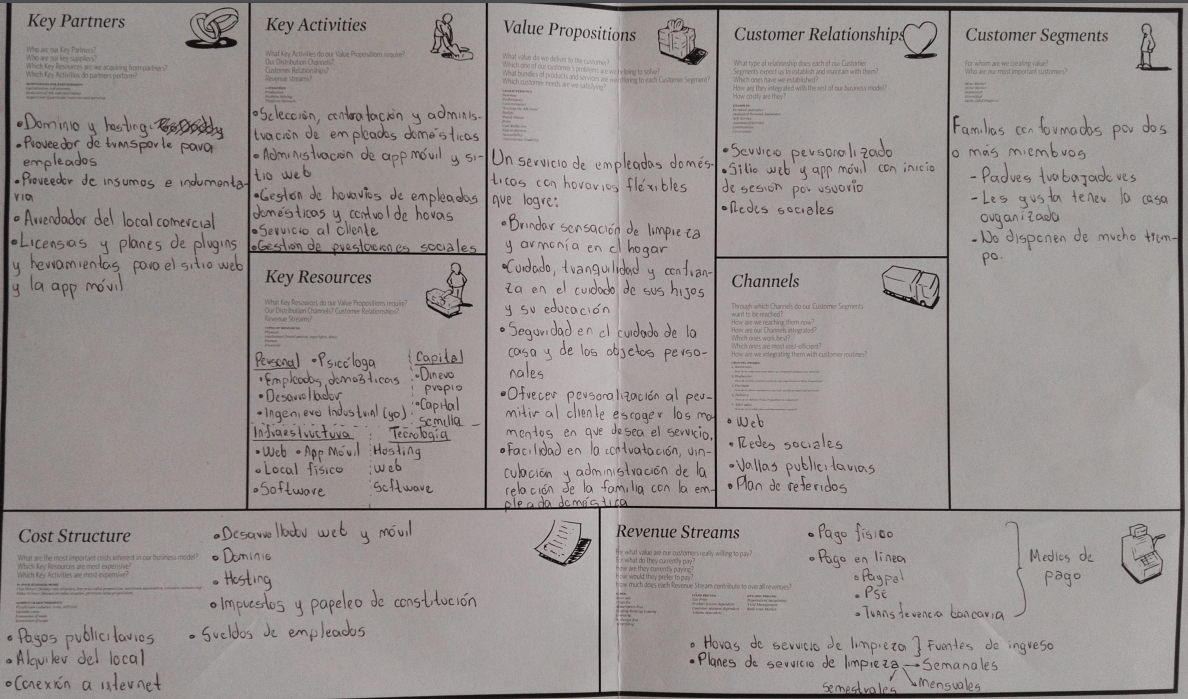 Key Partners
Who are our Key Partners?
Who are our key suppliers?
Which Key Resources are we acquiring from partners?
Which Key Activities do partners perform?
• Dominio y hosting:
• Proveedor de transporte para
empleados
• Proveedor de insumos e indumenta-
ria
• Arrendador del local comercial
• Licensias y planes de plugins
y herramientas para el sitio web
y la app móvil
Key Activities
What Key Activities do our Value Propositions require?
Our Distribution Channels?
Customer Relationships?
Revenue streams?
• Selección, contratación y adminis-
tración de empleados domésticas
• Administración de app móvil y si-
tio web
• Gestión de horarios de empleados
domésticas y control de horas
• Servicio al cliente
• Gestión de prestaciones sociales
Key Resources
What Key Resources do our Value Propositions require?
Our Distribution Channels? Customer Relationships?
Revenue Streams?
Personal • Psicóloga
• Empleadas domésticas
• Desarollador
• Ingeniero Industrial (yo)
Capital
• Dinero
propio
• Capital
semilla
Infraestructura
• Web • App Móvil
• Local físico
• Software
Tecnología
Hosting
Web
Software
Value Propositions
What value do we deliver to the customer?
Which one of our customer's problems are we helping to solve?
What bundles of products and services are we offering to each Customer Segment?
Which customer needs are we satisfying?
Un servicio de empleadas domés-
ticas con horarios fléxibles
que logre:
• Brindar sensación de limpieza
y armonía en el hogar
• Cuidado, tranquilidad y confian-
za en el cuidado de sus hijos
y su educación
• Seguridad en el cuidado de la
casa y de los objetos perso-
nales
• Ofrecer personalización al per-
mitir al cliente escoger los mo-
mentos en que desea el servicio.
• Facilidad en la contratación, vin-
culación y administración de la
relación de la familia con la em-
pleada doméstica
Customer Relationships
What type of relationship does each of our Customer
Segments expect us to establish and maintain with them?
Which ones have we established?
How are they integrated with the rest of our business model?
How costly are they?
• Servicio personalizado
• Sitio web y app móvil con inicio
de sesión por usuario
• Redes sociales
Channels
Through which Channels do our Customer Segments
want to be reached?
How are we reaching them now?
How are our Channels integrated?
Which ones work best?
Which ones are most cost-efficient?
How are we integrating them with customer routines?
• Web
• Redes sociales
• Vallas publicitarias
• Plan de referidos
Customer Segments
For whom are we creating value?
Who are our most important customers?
Familias conformadas por dos
o más miembros
- Padres trabajadores
- Les gusta tener la casa
organizada
- No disponen de mucho tiem-
po.
Cost Structure
What are the most important costs inherent in our business model?
Which Key Resources are most expensive?
Which Key Activities are most expensive?
• Desarrollador web y móvil
• Dominio
• Hosting
• Impuestos y papeleo de constitución
• Sueldos de empleados
• Pagos publicitarios
• Alquiler del local
• Conexión a internet
Revenue Streams
For what value are our customers really willing to pay?
For what do they currently pay?
How are they currently paying?
How would they prefer to pay?
How much does each Revenue Stream contribute to overall revenues?
• Pago físico
• Pago en línea
• Paypal
• PSE
• Transferencia bancaria
Medios de
pago
• Horas de servicio de limpieza } Fuentes de ingreso
• Planes de servicio de limpieza → Semanales
Semestrales Mensuales